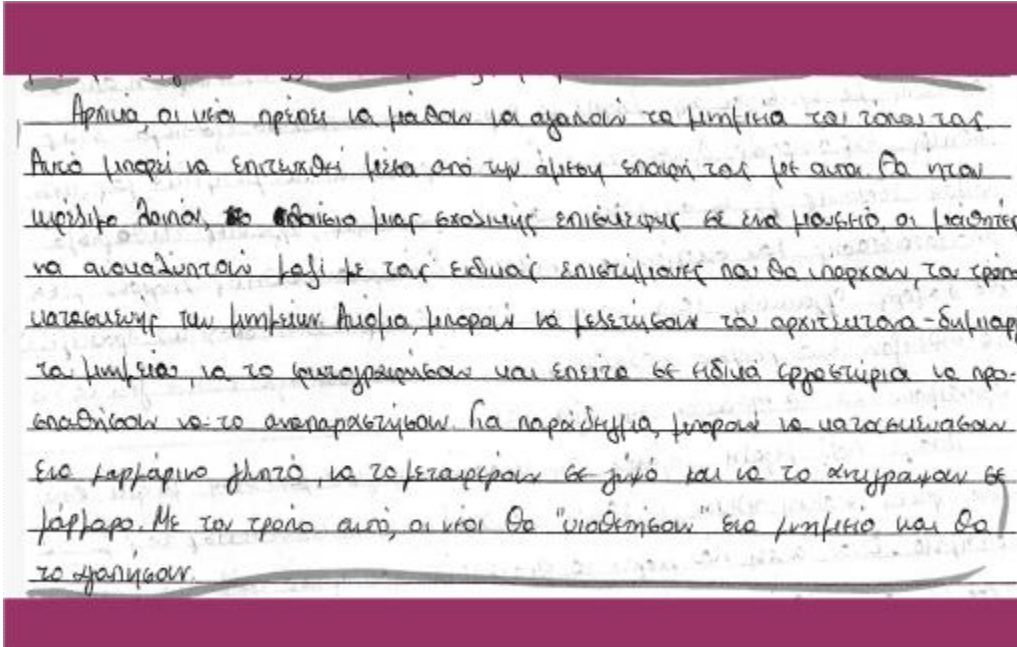 Αρχικά οι νέοι πρέπει να μάθουν να αγαπούν τα μνημεία του τόπου τους.
Αυτό μπορεί να επιτευχθεί μέσα από την άμεση επαφή τους με αυτα. Θα ηταν
ωφέλιμο λοιπόν, πλαίσιο μιας σχολικής επισκέψης σε ενα μουσειο, οι μαθητές
να ανακαλυπτουν μαζί με τους ειδικούς επιστήμονες που θα υπαρχουν, τον τρόπο
κατασκευής των μνημειων. Ακόμα, μπορούν να μελετήσουν τον αρχιτέκτονα-δημιουρ
του μνημείου, να το φωτογραφησουν και επειτα σε ειδικά εργαστήρια να προ-
σπαθήσουν να το αναπαραστήσουν. Για παράδειγμα, μπορουν να κατασκευασουν
ενα μαρμάρινο γλυπτό, να το μεταφέρουν σε γύψο και να το αντιγράψουν σε
μάρμαρο. Με τον τρόπο αυτό, οι νέοι θα "υιοθετήσουν" ενα μνημειο και θα
το αγαπήσουν.